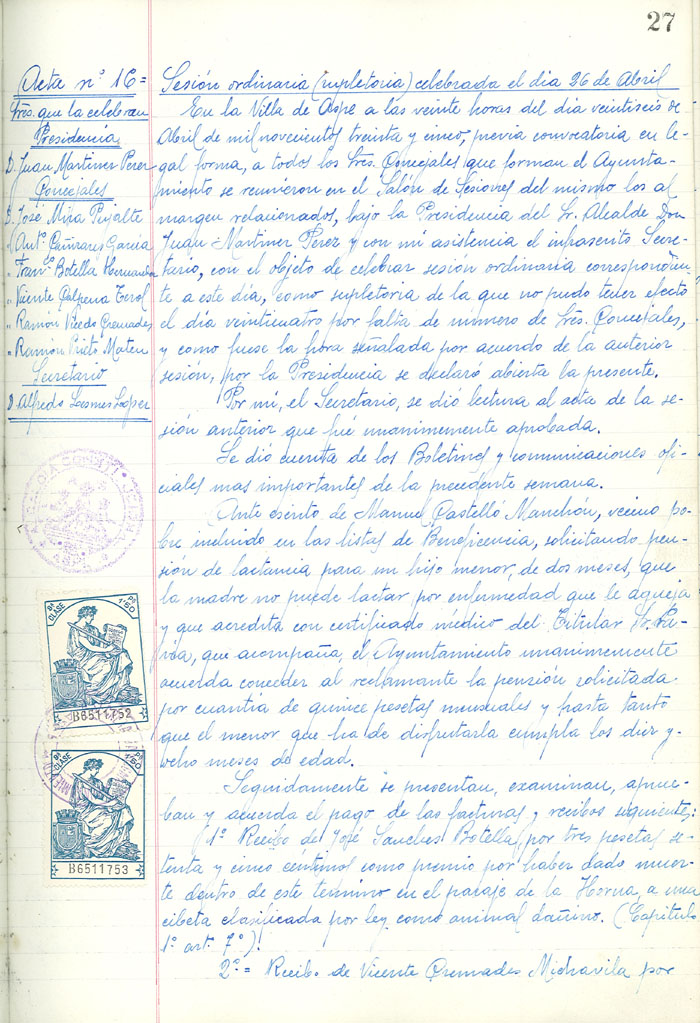 27
Acta nº 16=
Sres. que la celebran
Presidencia
D. Juan Martinez Perez
Concejales
D. José Mira Pujalte
" Antº Cañizares Garcia
" Franº Botella Hernandez
" Vicente Calpena Cerol
" Ramón Vicedo Cremades
" Ramón Prieto Mateu
Secretario
D. Alfredo Lesmes Lopez
8ª CLASE
Pª 1'50
B6511752
8ª CLASE
Pª 1'50
B6511753
Sesión ordinaria (supletoria) celebrada el dia 26 de Abril
En la Villa de Aspe a las veinte horas del dia veintiseis de
Abril de mil novecientos treinta y cinco, previa convocatoria en le-
gal forma, a todos los Sres. Concejales que forman el Ayunta-
miento se reunieron en el Salón de Sesiones del mismo los al
margen relacionados, bajo la Presidencia del Sr. Alcalde Don
Juan Martinez Perez y con mi asistencia el infrascrito Secre-
tario, con el objeto de celebrar sesión ordinaria correspondien-
te a este dia, como supletoria de la que no pudo tener efecto
el dia veinticuatro por falta de número de Sres. Concejales,
y como fuese la hora señalada por acuerdo de la anterior
sesión, por la Presidencia se declaró abierta la presente.
Por mí, el Secretario, se dio lectura al acta de la se-
sión anterior que fué unanimemente aprobada.
Se dió cuenta de los Boletines y comunicaciones ofi-
ciales mas importantes de la precedente semana.
Ante escrito de Manuel Castelló Manchón, vecino po-
bre incluido en las listas de Beneficencia, solicitando pen-
sión de lactancia para un hijo menor, de dos meses, que
la madre no puede lactar por enfermedad que le aqueja
y que acredita con certificado médico del Titular Sr.
que acompaña, el Ayuntamiento unanimemente
acuerda conceder al reclamante la pensión solicitada
por cuantia de quince pesetas mensuales y hasta tanto
que el menor que ha de disfrutarla cumpla los diez y
ocho meses de edad.
Seguidamente se presentan, examinan, aprue-
ban y acuerda el pago de las facturas y recibos siguientes:
1º Recibo de José Sanchez Botella, por tres pesetas se-
tenta y cinco centimos como premio por haber dado muer-
te dentro de este termino en el paraje de la Horna, a una
cibeta clasificada por ley como animal dañino. (Capitulo
1º art. 7º).
2º= Recibo de Vicente Cremades Michavila por